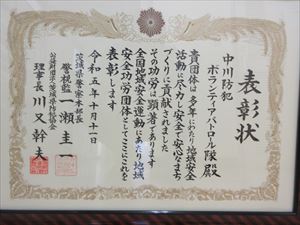 表彰状
中川防犯
ボランティアパトロール隊殿
貴団体は多年にわたり地域安全
活動に尽力し安全で安心なまち
づくりに貢献されました
その功労は顕著であります
全国地域安全運動にあたり地域
安全功労団体としてここにこれを
表彰します
令和五年十月十一日
茨城県警察本部長
警視監 一瀬圭一
公益財団法人茨城県防犯協会
理事長 川又幹夫